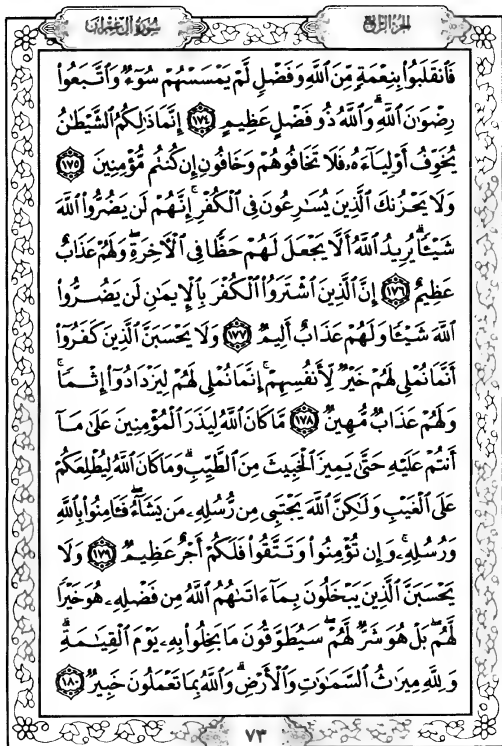 سورة آل عمران
الجزء الرابع
فَٱنقَلَبُوا۟ بِنِعْمَةٍ مِّنَ ٱللَّهِ وَفَضْلٍ لَّمْ يَمْسَسْهُمْ سُوٓءٌ وَٱتَّبَعُوا۟
رِضْوَٰنَ ٱللَّهِ ۗ وَٱللَّهُ ذُو فَضْلٍ عَظِيمٍ ١٧٤ إِنَّمَا ذَٰلِكُمُ ٱلشَّيْطَٰنُ
يُخَوِّفُ أَوْلِيَآءَهُۥ فَلَا تَخَافُوهُمْ وَخَافُونِ إِن كُنتُم مُّؤْمِنِينَ ١٧٥
وَلَا يَحْزُنكَ ٱلَّذِينَ يُسَٰرِعُونَ فِى ٱلْكُفْرِ ۚ إِنَّهُمْ لَن يَضُرُّوا۟ ٱللَّهَ
شَيْـًٔا ۗ يُرِيدُ ٱللَّهُ أَلَّا يَجْعَلَ لَهُمْ حَظًّا فِى ٱلْـَٔاخِرَةِ ۖ وَلَهُمْ عَذَابٌ
عَظِيمٌ ١٧٦ إِنَّ ٱلَّذِينَ ٱشْتَرَوُا۟ ٱلْكُفْرَ بِٱلْإِيمَٰنِ لَن يَضُرُّوا۟
ٱللَّهَ شَيْـًٔا وَلَهُمْ عَذَابٌ أَلِيمٌ ١٧٧ وَلَا يَحْسَبَنَّ ٱلَّذِينَ كَفَرُوٓا۟
أَنَّمَا نُمْلِى لَهُمْ خَيْرٌ لِّأَنفُسِهِمْ ۚ إِنَّمَا نُمْلِى لَهُمْ لِيَزْدَادُوٓا۟ إِثْمًا ۚ
وَلَهُمْ عَذَابٌ مُّهِينٌ ١٧٨ مَّا كَانَ ٱللَّهُ لِيَذَرَ ٱلْمُؤْمِنِينَ عَلَىٰ مَآ
أَنتُمْ عَلَيْهِ حَتَّىٰ يَمِيزَ ٱلْخَبِيثَ مِنَ ٱلطَّيِّبِ ۗ وَمَا كَانَ ٱللَّهُ لِيُطْلِعَكُمْ
عَلَى ٱلْغَيْبِ وَلَٰكِنَّ ٱللَّهَ يَجْتَبِى مِن رُّسُلِهِۦ مَن يَشَآءُ ۖ فَـَٔامِنُوا۟ بِٱللَّهِ
وَرُسُلِهِۦ ۚ وَإِن تُؤْمِنُوا۟ وَتَتَّقُوا۟ فَلَكُمْ أَجْرٌ عَظِيمٌ ١٧٩ وَلَا
يَحْسَبَنَّ ٱلَّذِينَ يَبْخَلُونَ بِمَآ ءَاتَىٰهُمُ ٱللَّهُ مِن فَضْلِهِۦ هُوَ خَيْرًا
لَّهُم ۖ بَلْ هُوَ شَرٌّ لَّهُمْ ۖ سَيُطَوَّقُونَ مَا بَخِلُوا۟ بِهِۦ يَوْمَ ٱلْقِيَٰمَةِ ۗ
وَلِلَّهِ مِيرَٰثُ ٱلسَّمَٰوَٰتِ وَٱلْأَرْضِ ۗ وَٱللَّهُ بِمَا تَعْمَلُونَ خَبِيرٌ ١٨٠
٧٣